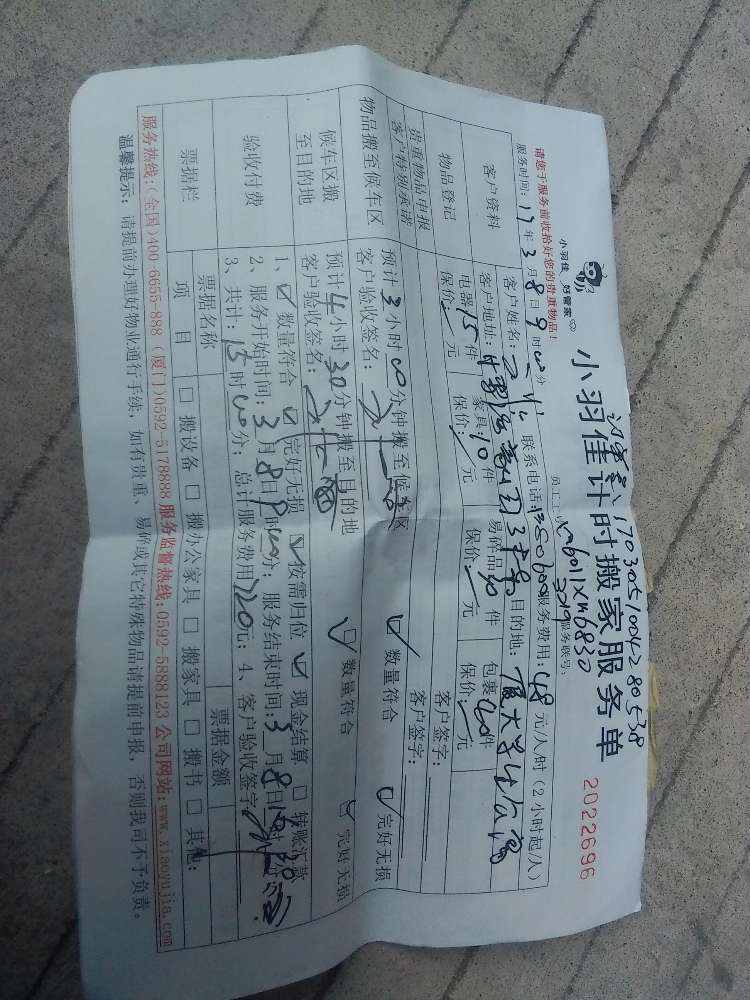 小羽佳 好管家
小羽佳计时搬家服务单
2022696
170305100428 0538
请您于服务前收拾好您的贵重物品!
服务时间: 17 年 3 月 8 日 9 时 00 分
服务费用: 48 元/人/时 (2小时起/人)
服务联号:
客户资料
客户姓名: 联系电话:
客户地址: 目的地:
物品登记
电器 15 件 家具: 10 件 易碎品 件 包裹 20 件
保价: 元 保价: 元 保价: 元 保价: 元
贵重物品申报 客户签字:
客户特别承诺 客户签字:
物品搬至候车区
预计 3 小时 00 分钟搬至候车区 ☑ 数量符合 ☑ 完好无损
客户验收签名:
候车区搬至目的地
预计 4 小时 30 分钟搬至目的地 ☑ 数量符合 ☑ 完好无损
客户验收签名:
验收付费
1、☑ 数量符合 ☑ 完好无损 ☑ 按需归位 ☑ 现金结算 □ 转账汇款
2、服务开始时间: 3 月 8 日 9 时 00 分; 服务结束时间: 3 月 8 日
3、共计: 15 时 00 分; 总计服务费用 720 元; 4、客户验收签字
票据栏
票据名称 票据金额
项目 □ 搬设备 □ 搬办公家具 □ 搬家具 □ 搬书 □ 其他:
服务热线:(全国)400-6655-888 (厦门)0592-5178888 服务监督热线:0592-5888123 公司网站:www.xiaoyujia.com
温馨提示: 请提前办理好物业通行手续, 如有贵重、易碎或其它特殊物品请提前申报, 否则我司不予负责。